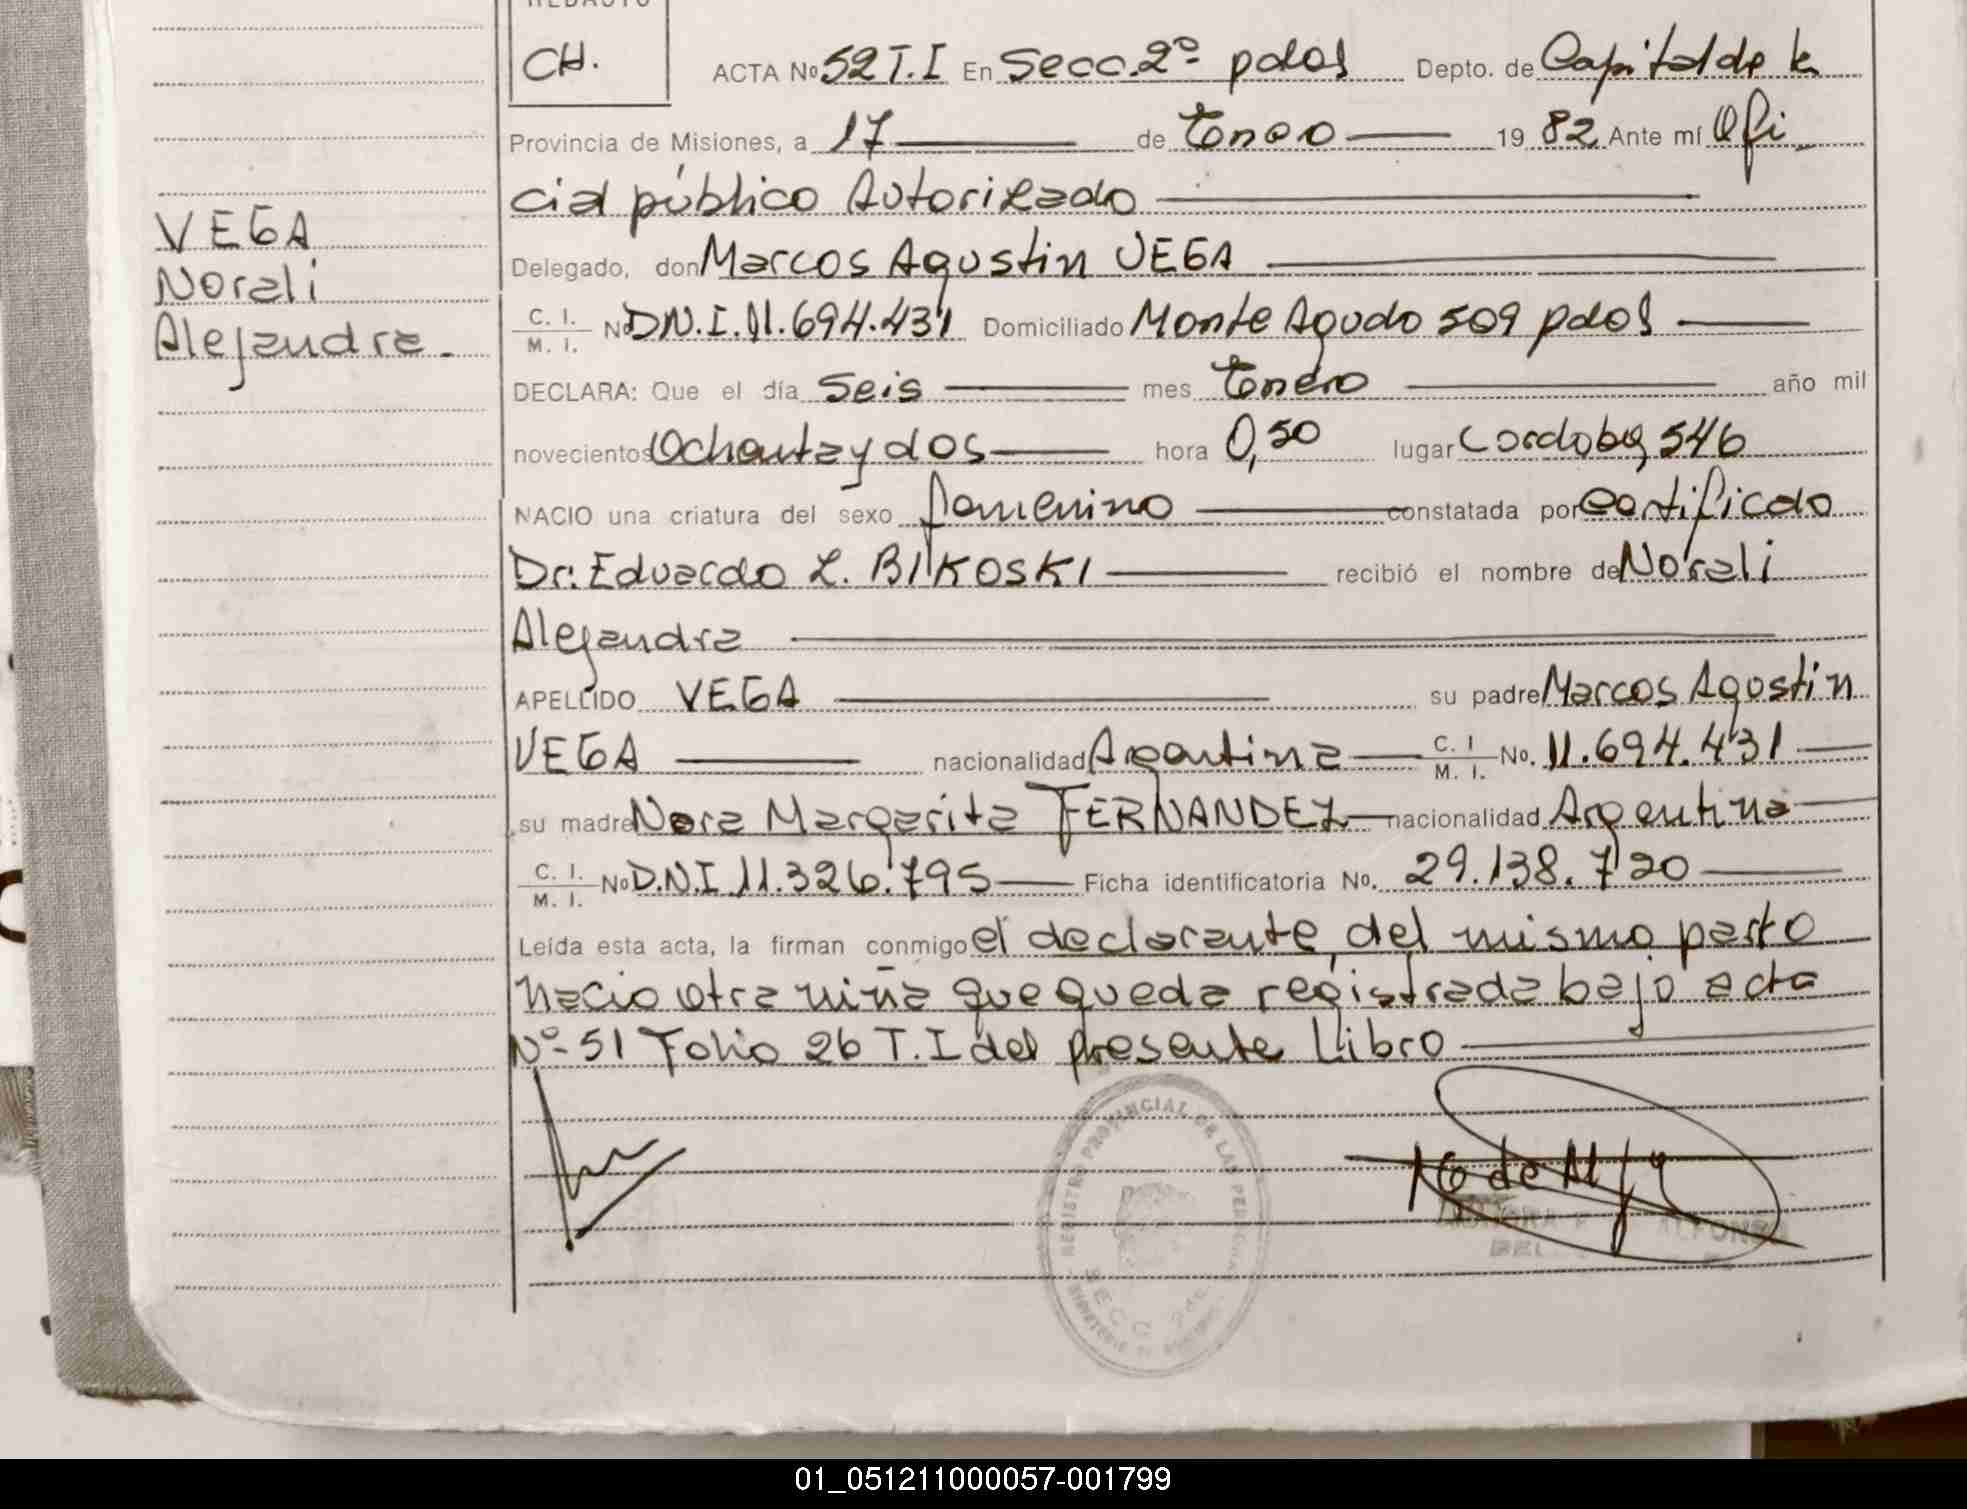 REDACTO
CH.
ACTA No 52 T.I En Secc. 2º pdas Depto. de Capital de la
Provincia de Misiones, a 17 de Enero 1982 Ante mí Ofi
cial público Autorizado
VEGA
Norali
Alejandra.
Delegado, don Marcos Agustin VEGA
C. I.
M. I. No D.N.I. 11.694.431 Domiciliado Monte Agudo 509 pdas
DECLARA: Que el día Seis mes Enero año mil
novecientos Ochenta y dos hora 0,50 lugar Cordoba 546
NACIO una criatura del sexo femenino constatada por certificado
Dr. Eduardo L. BILKOSKI recibió el nombre de Norali
Alejandra
APELLIDO VEGA su padre Marcos Agustin
VEGA nacionalidad Argentina C. I. M. I. No. 11.694.431
su madre Nora Margarita FERNANDEZ nacionalidad Argentina
C. I.
M. I. No D.N.I 11.326.795 Ficha identificatoria No. 29.138.720
Leída esta acta, la firman conmigo el declarante del mismo parto
nacio otra niña que queda registrada bajo acta
Nº 51 Folio 26 T.I del presente Libro
REGISTRO PROVINCIAL DE LAS PERSONAS
SECC 2da
01_051211000057-001799